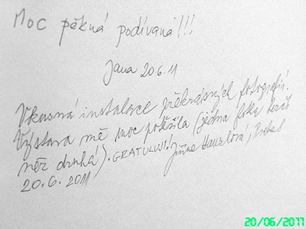 Moc pěkná podívaná!!!
Jana 20.6.11
Vkusná instalace překrásných fotografií.
Výstava mě moc potěšila (jedna fotka lepší
než druhá). GRATULUJI! Jiřina
20.6.2011
20/06/2011